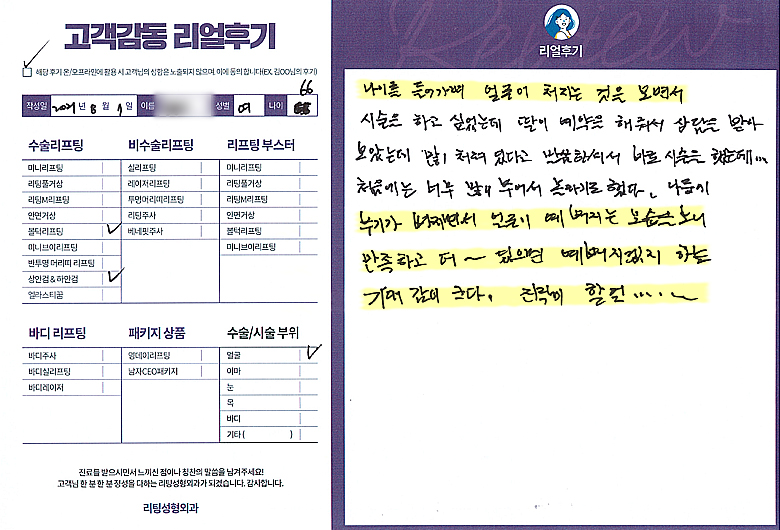 고객감동 리얼후기
해당 후기 온/오프라인에 활용 시 고객님의 성함은 노출되지 않으며, 이에 동의 합니다(EX. 김OO님의 후기)
66
작성일 2021년 8월 9일 이름 성별 여 나이
수술리프팅
미니리프팅
리팅풀거상
리팅M리프팅
안면거상
볼턱리프팅
미니브이리프팅
반투명 머리띠 리프팅
상안검 & 하안검
엘라스티꿈
비수술리프팅
실리프팅
레이저리프팅
투명머리띠리프팅
리팅주사
베네핏주사
리프팅 부스터
미니리프팅
리팅풀거상
리팅M리프팅
안면거상
볼턱리프팅
미니브이리프팅
바디 리프팅
바디주사
바디실리프팅
바디레이저
패키지 상품
원데이리프팅
남자CEO패키지
수술/시술 부위
얼굴
이마
눈
목
바디
기타 ( )
진료를 받으시면서 느끼신 점이나 칭찬의 말씀을 남겨주세요!
고객님 한 분 한 분 정성을 다하는 리팅성형외과가 되겠습니다. 감사합니다.
리팅성형외과
Review
리얼후기
나이를 들어가며 얼굴이 처지는 것을 보면서
시술은 하고 싶었는데 딸이 예약을 해줘서 상담을 받아
보았는데 많이 처져 있다고 말씀하셔서 바로 시술을 했는데...
처음에는 너무 많이 부어서 놀라기도 했다. 나름이
부기가 빠지면서 얼굴이 예뻐지는 모습을 보니
만족하고 더~ 있으면 예뻐지겠지 하는
기대감이 크다.